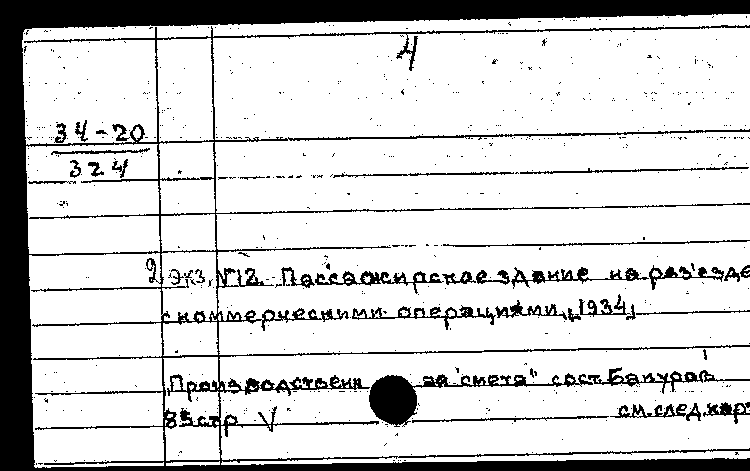 4
34-20
324
2 экз. №12. Пассажирское здание на раз'езде
с коммерческими операциями, [1934]
"Производственн за смета" сост. Бакуров
83 стр V
см. след. карт